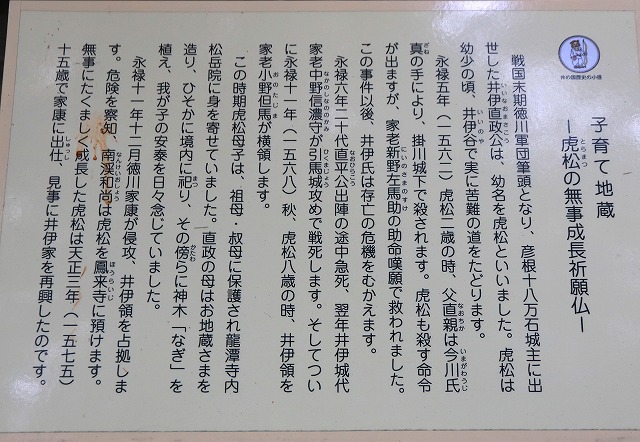 子育て地蔵
―虎松の無事成長祈願仏―
とらまつ
戦国末期徳川軍団筆頭となり、彦根十八万石城主に出
世した井伊直政公は、幼名を虎松といいました。虎松は
いいなおまさこう
幼少の頃、井伊谷で実に苦難の道をたどります。
いいのや
永禄五年（一五六二）虎松二歳の時、父直親は今川氏
なおちか
いまがわうじ
真の手により、掛川城下で殺されます。虎松も殺す命令
ざね
が出ますが、家老新野左馬助の助命嘆願で救われました。
にいのさまのすけ
この事件以後、井伊氏は存亡の危機をむかえます。
永禄六年二十代直平公出陣の途中急死、翌年井伊城代
なおひらこう
家老中野信濃守が引馬城攻めで戦死します。そしてつい
なかのしなののかみ
ひくまじょう
に永禄十一年（一五六八）秋、虎松八歳の時、井伊領を
家老小野但馬が横領します。
おのたじま
この時期虎松母子は、祖母・叔母に保護され龍潭寺内
松岳院に身を寄せていました。直政の母はお地蔵さまを
造り、ひそかに境内に祀り、その傍らに神木「なぎ」を
まつ
かたわ
植え、我が子の安泰を日々念じていました。
永禄十一年十二月徳川家康が侵攻、井伊領を占拠しま
す。危険を察知、南渓和尚は虎松を鳳来寺に預けます。
なんけいおしょう
ほうらいじ
無事にたくましく成長した虎松は天正三年（一五七五）
十五歳で家康に出仕、見事に井伊家を再興したのです。
しゅっし